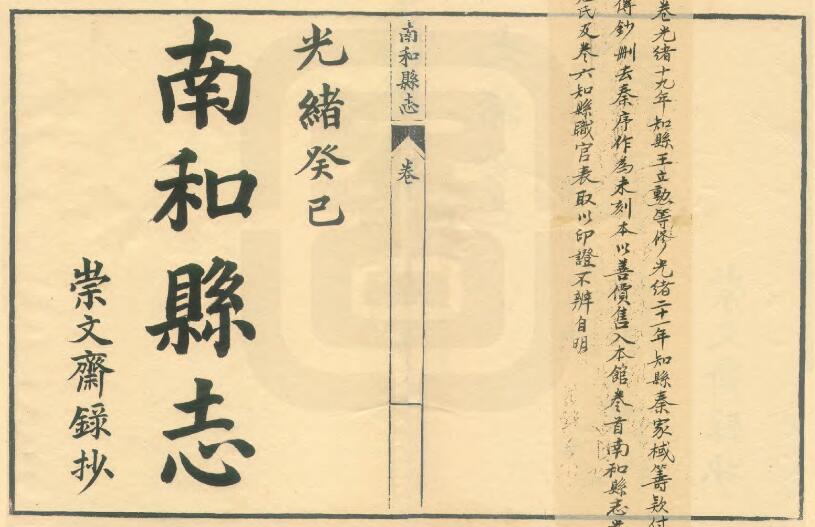 卷光緒十九年知縣王立勳等修光緒二十一年知縣秦家棫籌款付
傳鈔刪去秦序作為未刻本以善價售入本館卷首南和縣志
氏及卷六知縣職官表取以印證不辨自明
南和縣志
卷
光緒癸巳
南和縣志
崇文齋錄抄